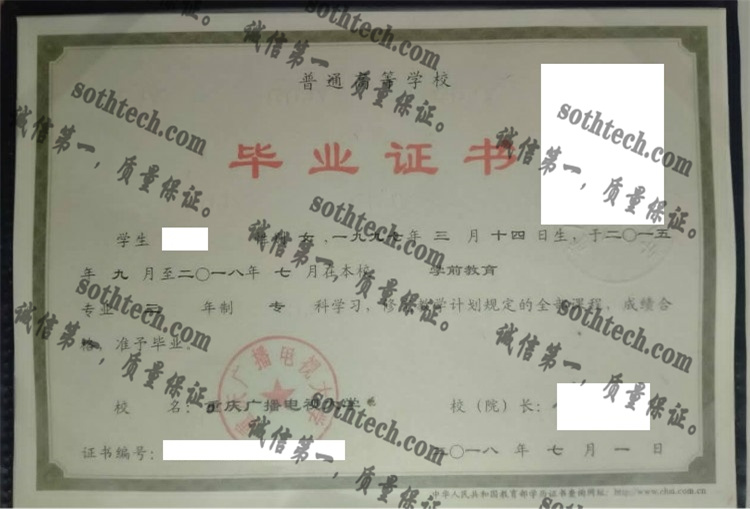 普通高等学校
毕业证书
学生 性别 女,一九九七年 三 月 十四 日生,于二〇一五
年 九 月至二〇一八年 七 月在本校 学前教育
专业 三 年制 专 科学习,修完教学计划规定的全部课程,成绩合
格,准予毕业。
校 名:重庆广播电视大学 校(院)长:
证书编号: 二〇一八年 七 月 一 日
中华人民共和国教育部学历证书查询网址:http://www.chsi.com.cn
重庆广播电视大学
sothtech.com
诚信第一,质量保证。
sothtech.com
诚信第一,质量保证。
sothtech.com
诚信第一,质量保证。
sothtech.com
诚信第一,质量保证。
sothtech.com
诚信第一,质量保证。
sothtech.com
诚信第一,质量保证。
sothtech.com
诚信第一,质量保证。
sothtech.com
诚信第一,质量保证。